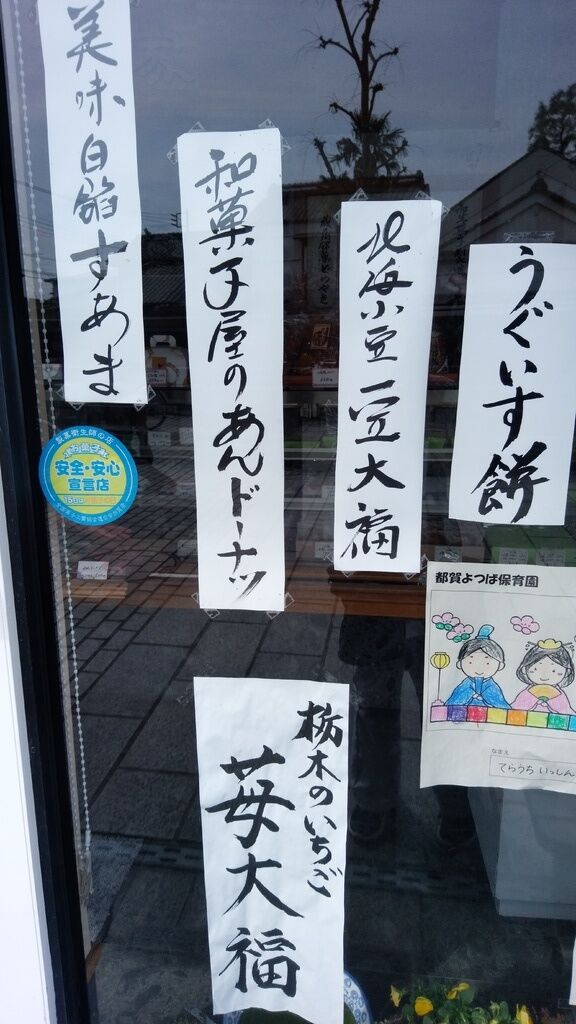 美味白餡すあま
和菓子屋のあんドーナツ
北海小豆豆大福
うぐいす餅
製菓衛生師の店
安全・安心
宣言店
都賀よつば保育園
なまえ
てらうち いっしん
栃木のいちご
苺大福